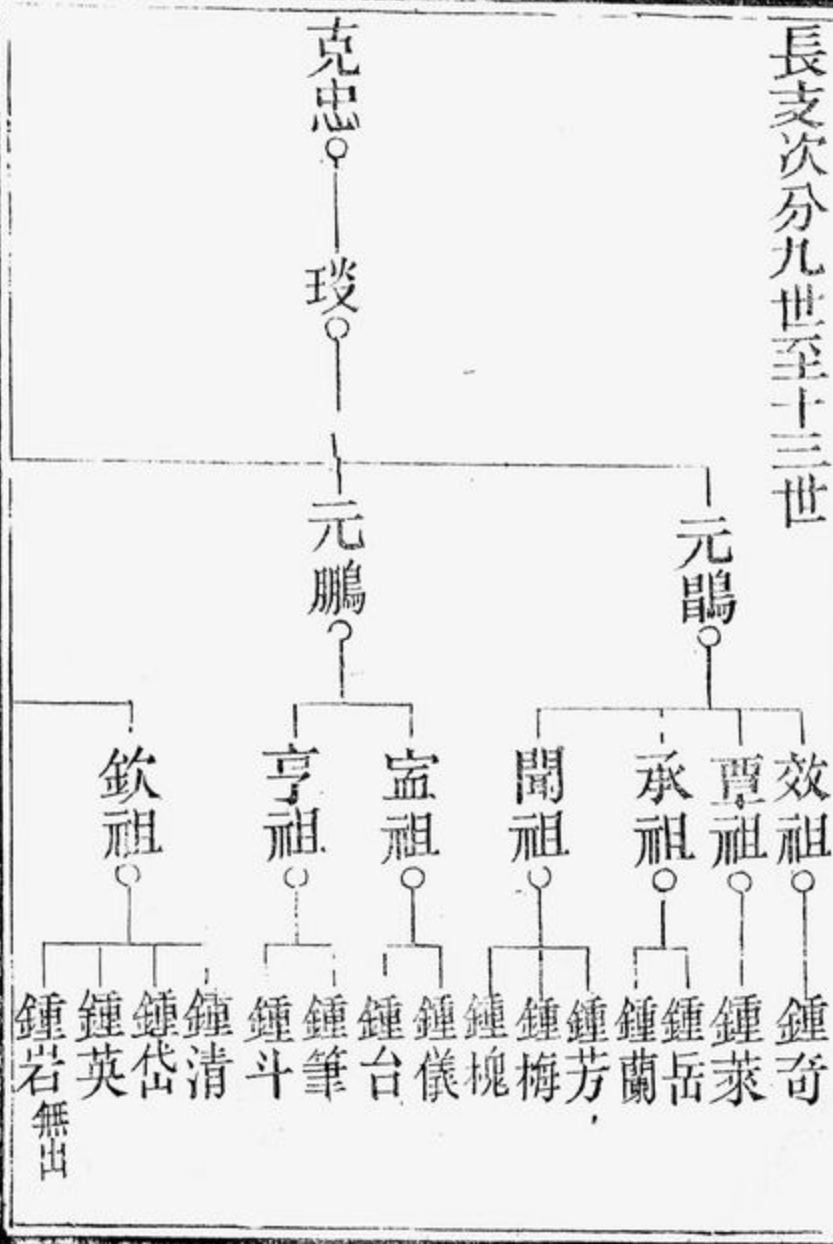 長支次分九世至十三世
克忠
琰
元鵾
元鵬
效祖
覃祖
承祖
聞祖
孟祖
亨祖
欽祖
鍾奇
鍾萊
鍾岳
鍾蘭
鍾芳
鍾梅
鍾槐
鍾儀
鍾台
鍾筆
鍾斗
鍾清
鍾岱
鍾英
鍾岩無出